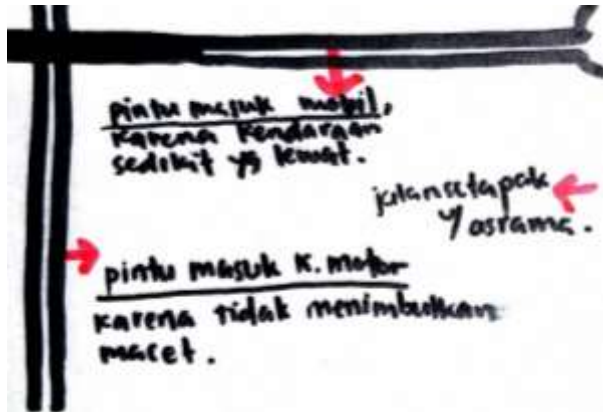 pintu masuk mobil,
karena kendaraan
sedikit yg lewat.
jalan setapak
y/ asrama.
pintu masuk K. motor
karena tidak menimbulkan
macet.